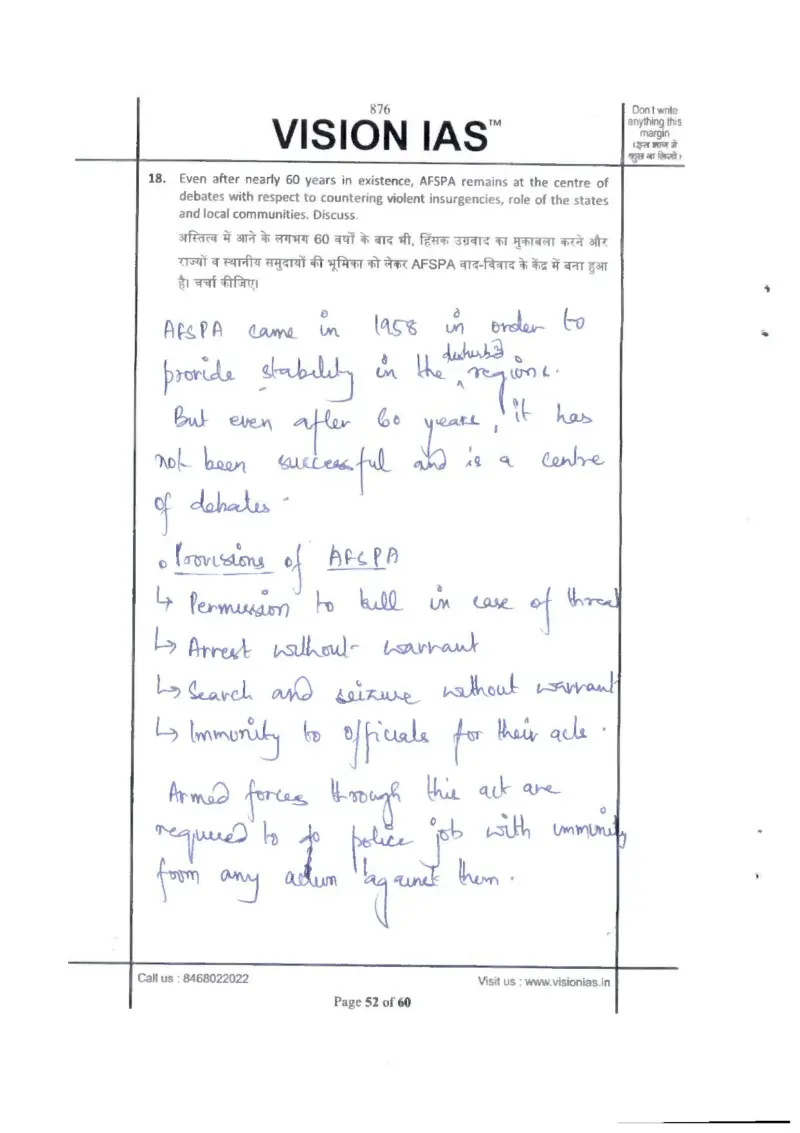 876
VISION IAS™
Don't write
anything this
margin
(इस भाग में
कुछ ना लिखें)
18. Even after nearly 60 years in existence, AFSPA remains at the centre of
debates with respect to countering violent insurgencies, role of the states
and local communities. Discuss.
अस्तित्व में आने के लगभग 60 वर्षों के बाद भी, हिंसक उग्रवाद का मुकाबला करने और
राज्यों व स्थानीय समुदायों की भूमिका को लेकर AFSPA वाद-विवाद के केंद्र में बना हुआ
है। चर्चा कीजिए।
AFSPA came in 1958 in order to
provide stability in the disturbed regions.
But even after 60 years, it has
not been successful and is a centre
of debates.
Provisions of AFSPA
↳ Permission to kill in case of threat
↳ Arrest without warrant
↳ Search and seizure without warrant
↳ Immunity to officials for their acts.
Armed forces through this act are
required to do police job with immunity
from any action against them.
Call us : 8468022022
Visit us : www.visionias.in
Page 52 of 60